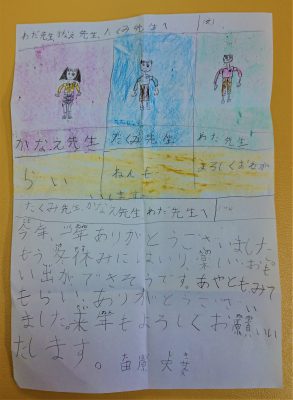 わだ先生、かなえ先生、たくみ先生へ
かなえ先生
たくみ先生
わだ先生
らい
ねんも
よろしくおねが
いします
たくみ先生、かなえ先生、わだ先生へ
今年、一年ありがとうございました
もう冬休みにはいり、楽しいおも
い出ができそうです。あやともみて
もらい、ありがとうござい
ました。来年もよろしくお願いい
たします。